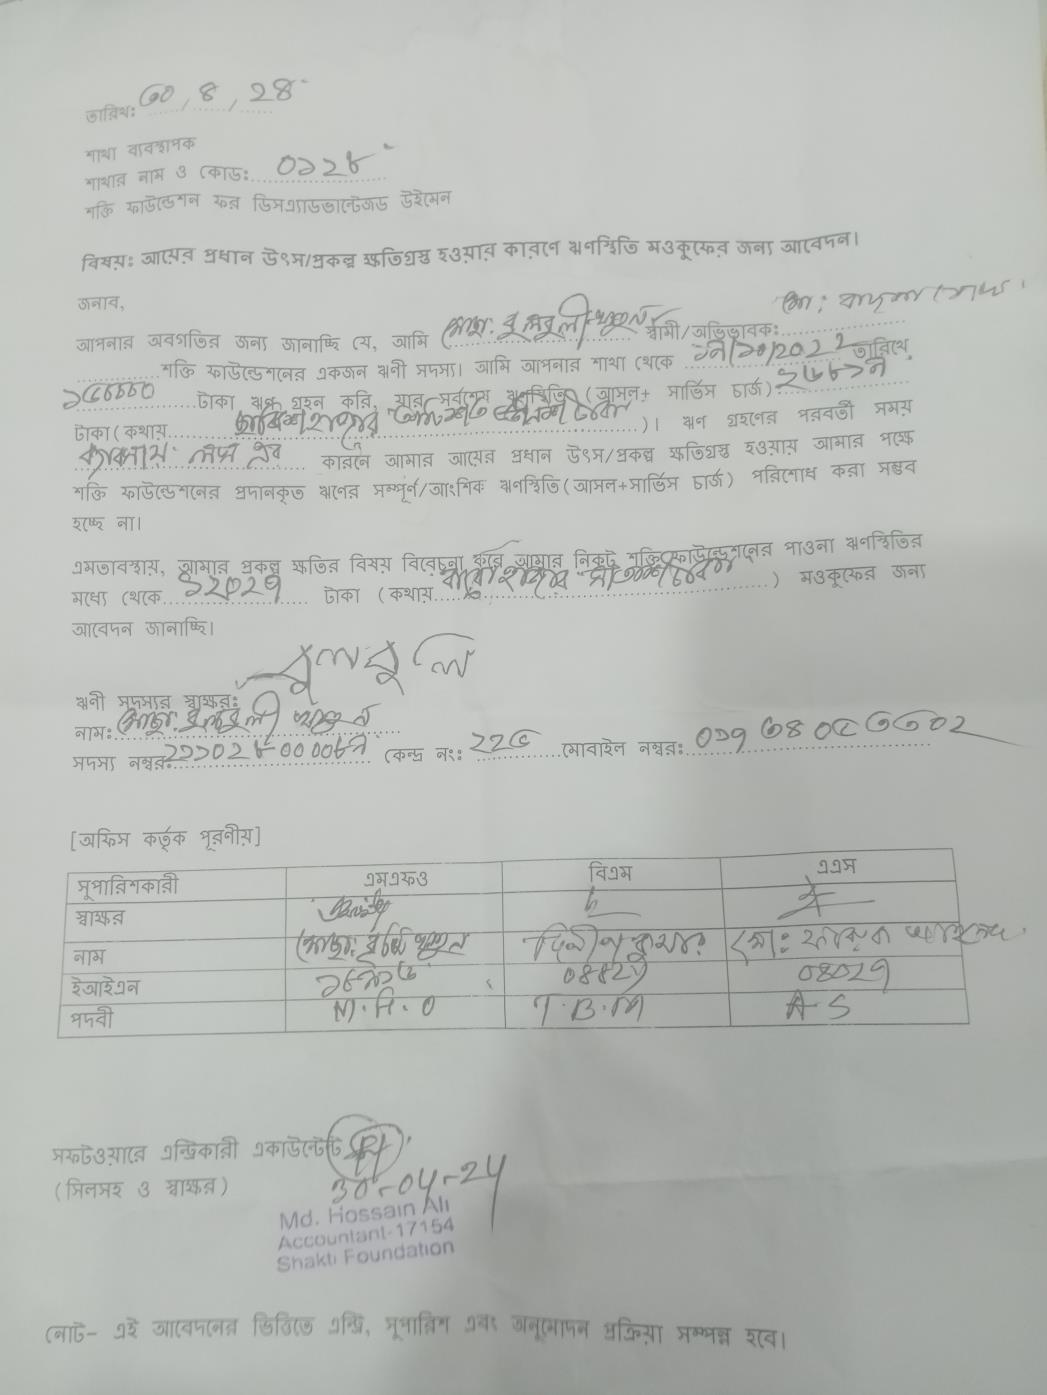 তারিখঃ ৩০/৪/২৪
শাখা ব্যবস্থাপক
শাখার নাম ও কোডঃ ০১২৮
শক্তি ফাউন্ডেশন ফর ডিসএ্যাডভান্টেজড উইমেন
বিষয়ঃ আয়ের প্রধান উৎস/প্রকল্প ক্ষতিগ্রস্ত হওয়ার কারণে ঋণস্থিতি মওকুফের জন্য আবেদন।
জনাব,
আপনার অবগতির জন্য জানাচ্ছি যে, আমি মোছাঃ বুলবুলী খাতুন স্বামী/অভিভাবকঃ মোঃ
শক্তি ফাউন্ডেশনের একজন ঋনী সদস্য। আমি আপনার শাখা থেকে ১৭/১০/২০২২ তারিখে
টাকা ঋণ গ্রহন করি, যার সর্বশেষ ঋণস্থিতি (আসল+ সার্ভিস চার্জ)
টাকা (কথায় টাকা)। ঋণ গ্রহণের পরবর্তী সময়
ব্যবসায় কারনে আমার আয়ের প্রধান উৎস/প্রকল্প ক্ষতিগ্রস্ত হওয়ায় আমার পক্ষে
শক্তি ফাউন্ডেশনের প্রদানকৃত ঋণের সম্পূর্ণ/আংশিক ঋণস্থিতি (আসল+সার্ভিস চার্জ) পরিশোধ করা সম্ভব
হচ্ছে না।
এমতাবস্থায়, আমার প্রকল্প ক্ষতির বিষয় বিবেচনা করে আমার নিকট শক্তি ফাউন্ডেশনের পাওনা ঋণস্থিতির
মধ্যে থেকে টাকা (কথায় বারো হাজার টাকা) মওকুফের জন্য
আবেদন জানাচ্ছি।
বুলবুলি
ঋনী সদস্যর স্বাক্ষরঃ
নামঃ মোছাঃ বুলবুলী খাতুন
সদস্য নম্বরঃ কেন্দ্র নংঃ ২২৫ মোবাইল নম্বরঃ ০১৭৩৪০৫৩৩০২
[অফিস কর্তৃক পূরণীয়]
সুপারিশকারী এমএফও বিএম এএস
স্বাক্ষর
নাম মোছাঃ খাতুন দিলীপ কুমার মোঃ
ইআইএন 08027
পদবী M.F.O T.B.M A-S
সফটওয়ারে এন্ট্রিকারী একাউন্টেন্ট
(সিলসহ ও স্বাক্ষর) 30-04-24
Md. Hossain Ali
Accountant-17154
Shakti Foundation
নোট- এই আবেদনের ভিত্তিতে এন্ট্রি, সুপারিশ এবং অনুমোদন প্রক্রিয়া সম্পন্ন হবে।